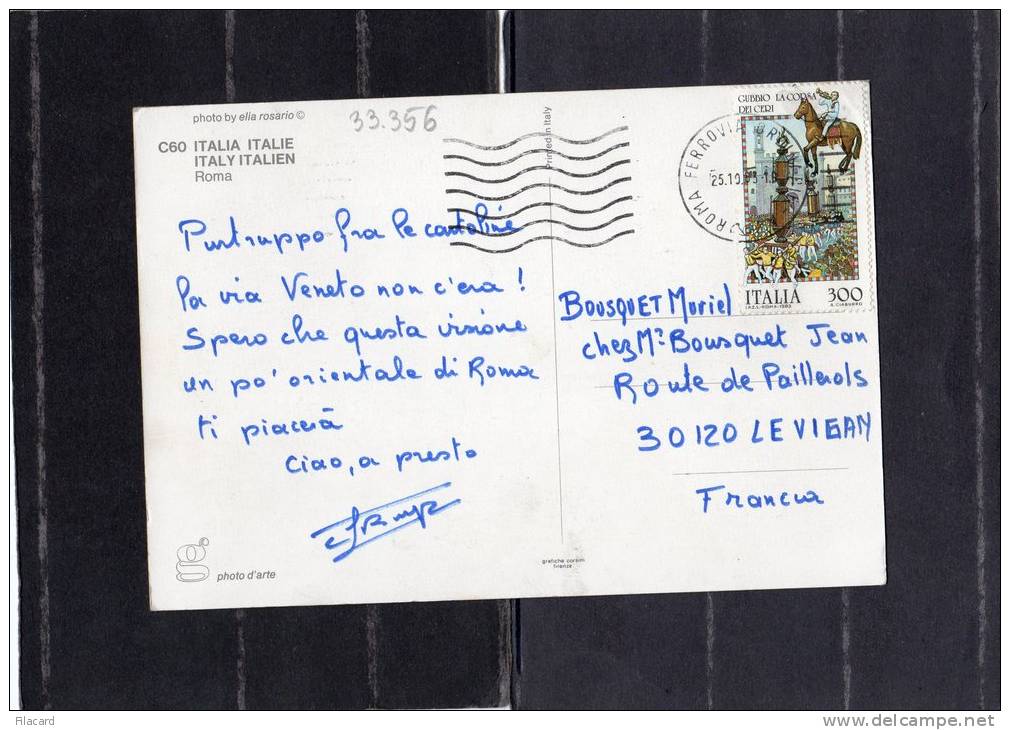 photo by elia rosario ©
33.356
C60 ITALIA ITALIE
ITALY ITALIEN
Roma
Purtruppo fra le cartoline
la via Veneto non c'era !
Spero che questa visione
un po' orientale di Roma
ti piacerà
Ciao, a presto
g
photo d'arte
Printed in Italy
grafiche corsini
firenze
ROMA FERROVIA
25.10
GUBBIO LA CORSA
DEI CERI
ITALIA 300
I.P.Z.S.-ROMA-1983
BOUSQUET Muriel
chez Mr Bousquet Jean
Route de Paillerols
30120 LE VIGAN
Francia
Filacard
www.delcampe.net